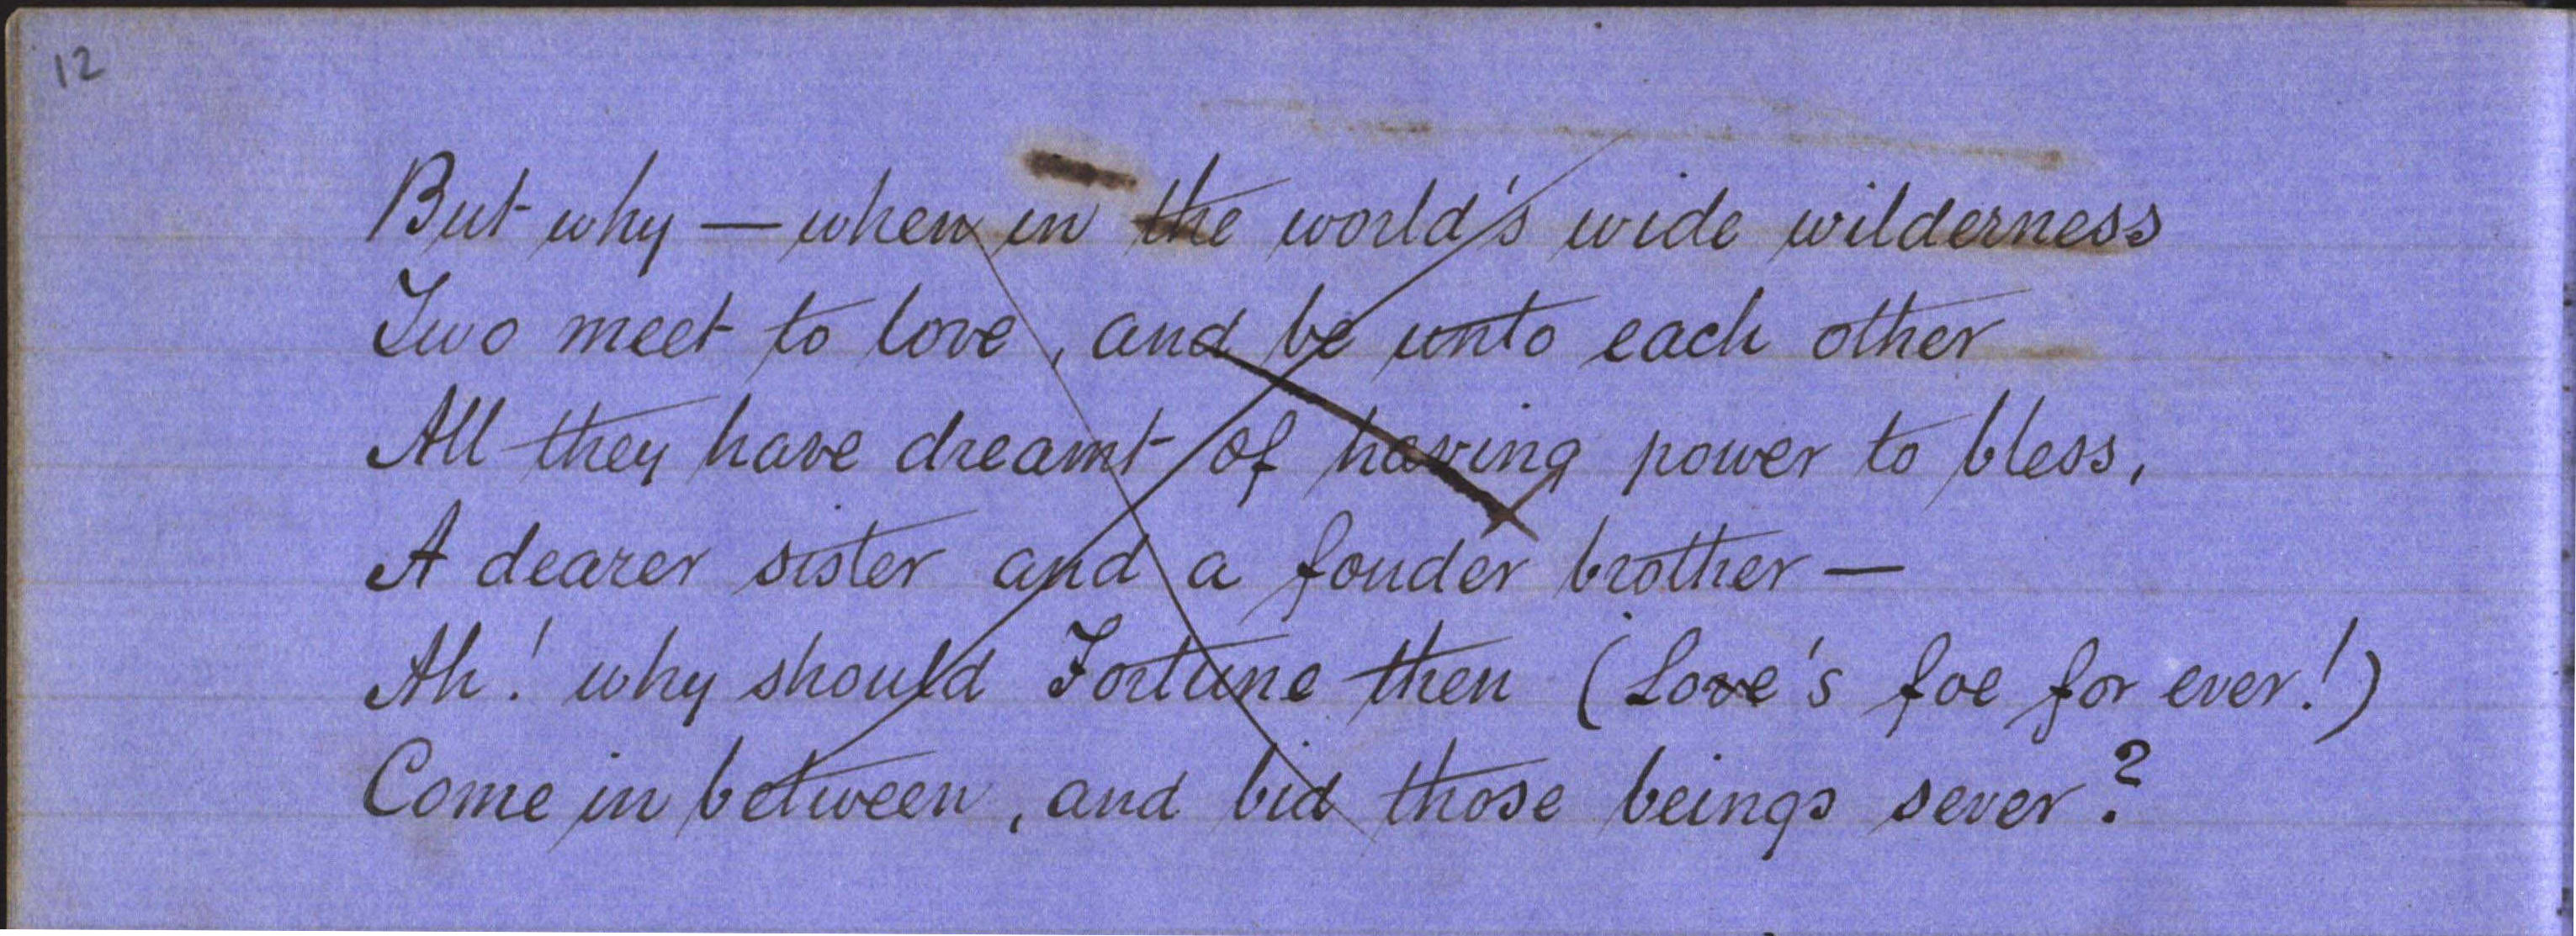 12
But why — when in the world's wide wilderness
Two meet to love, and be unto each other
All they have dreamt of having power to bless,
A dearer sister and a fonder brother —
Ah! why should Fortune then (Love's foe for ever!)
Come in between, and bid those beings sever?